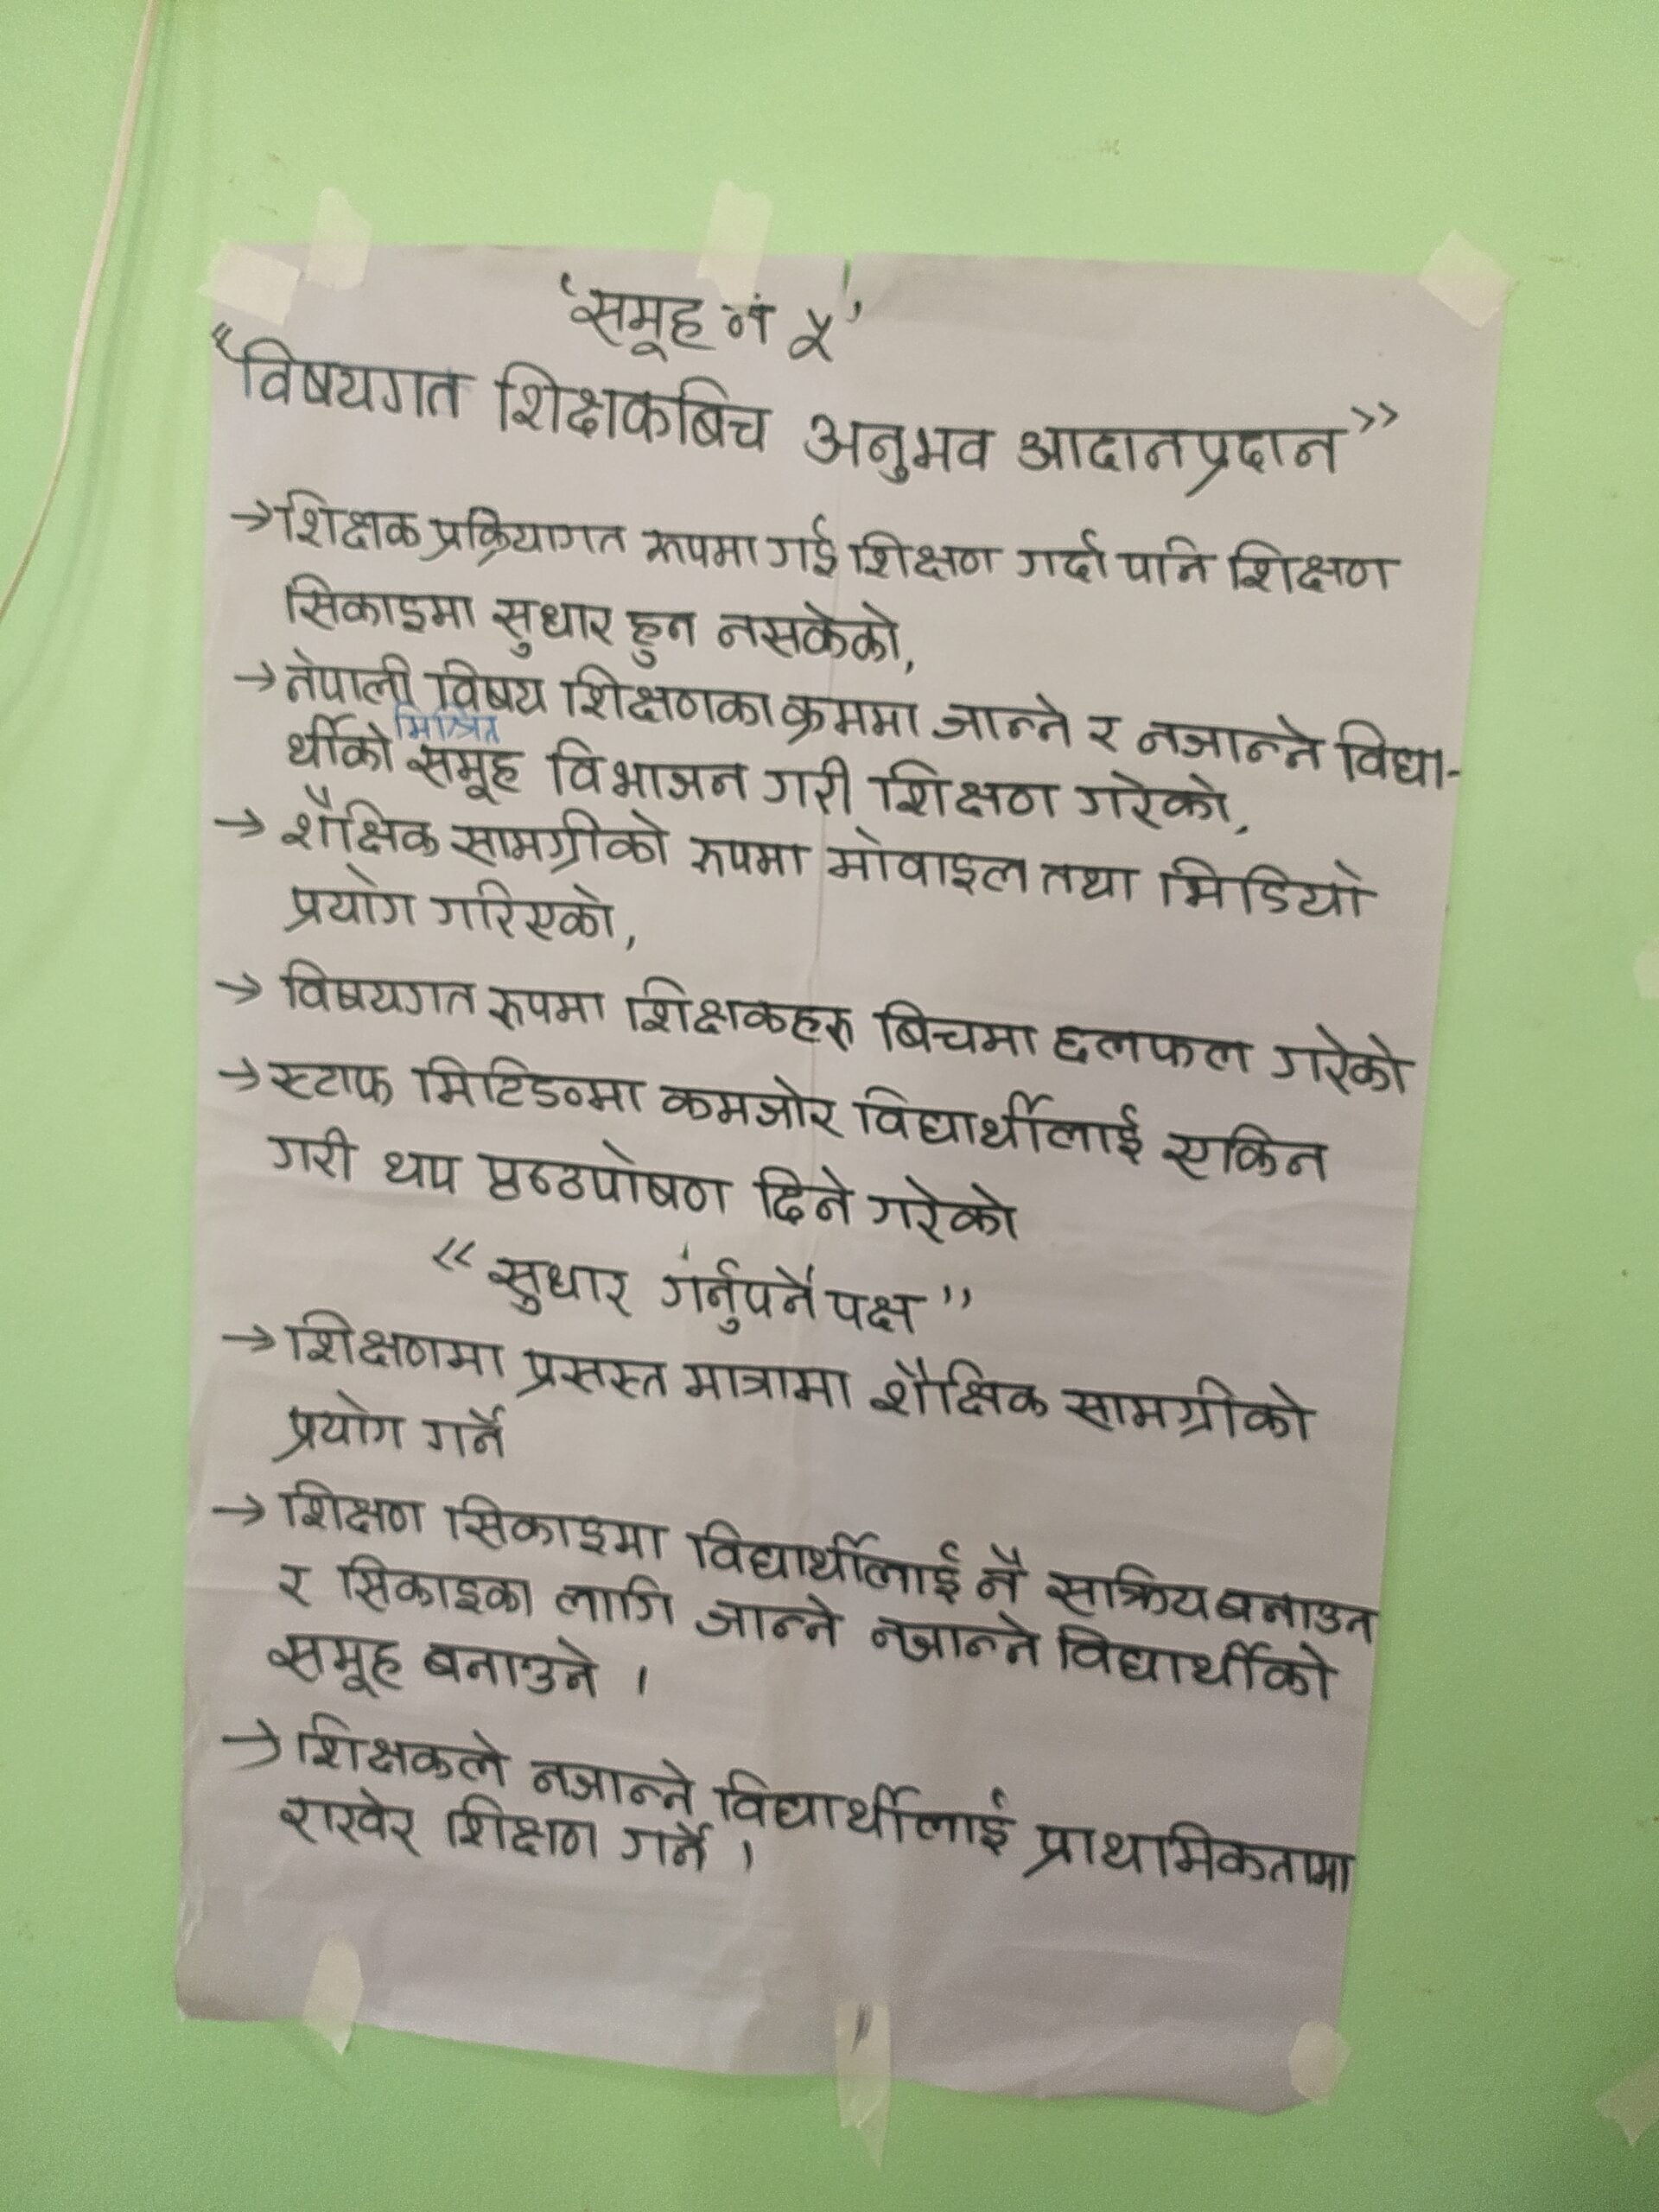 'समूह नं ५'
"विषयगत शिक्षकबिच अनुभव आदानप्रदान"
→शिक्षक प्रक्रियागत रूपमा गई शिक्षण गर्दा पनि शिक्षण
सिकाइमा सुधार हुन नसकेको,
→नेपाली विषय शिक्षणका क्रममा जान्ने र नजान्ने विद्या-
मिश्रित
र्थीको समूह विभाजन गरी शिक्षण गरेको,
→ शैक्षिक सामग्रीको रुपमा मोवाइल तथा मिडियो
प्रयोग गरिएको,
→ विषयगत रुपमा शिक्षकहरु बिचमा छलफल गरेको
→स्टाफ मिटिङमा कमजोर विद्यार्थीलाई एकिन
गरी थप पृष्ठपोषण दिने गरेको
"सुधार गर्नुपर्ने पक्ष"
→शिक्षणमा प्रसस्त मात्रामा शैक्षिक सामग्रीको
प्रयोग गर्ने
→ शिक्षण सिकाइमा विद्यार्थीलाई नै सक्रिय बनाउन
र सिकाइका लागि जान्ने नजान्ने विद्यार्थीको
समूह बनाउने ।
→शिक्षकले नजान्ने विद्यार्थीलाई प्राथमिकतामा
राखेर शिक्षण गर्ने ।